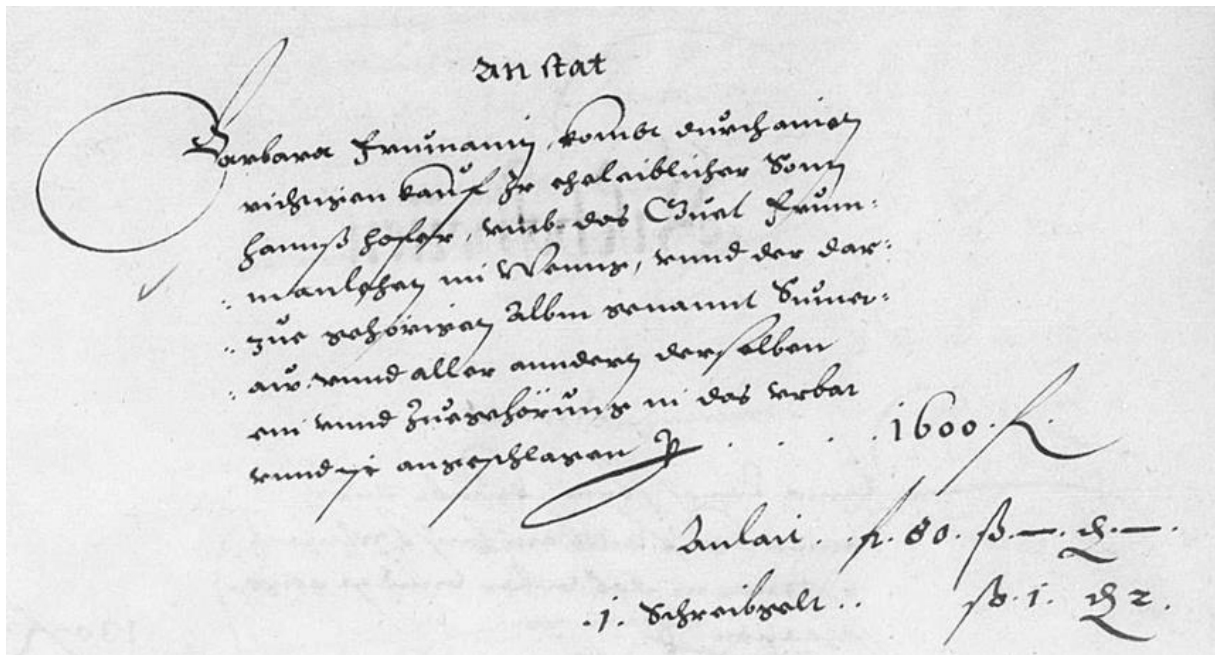 An stat
Barbara Frumanin, kombt durch ainen
richtigen kauf Ir eheleiblicher Sonn
Hannß Hofer, umb das Guet Frum-
manlehen in Weng, vnnd der dar-
zue gehörigen Albm genannt Sumer-
au vnnd aller anndern derselben
ein vnnd Zuegehörung in das vrbar
vnnd ist angeschlagen p . . . . 1600. fl.
Anlait . fl. 80. ß. —. d. —.
. 1. Schreibgelt . . ß. 1. d 2.